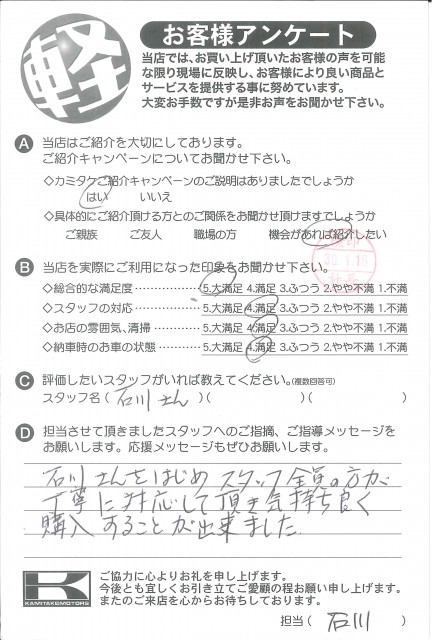 軽
お客様アンケート
当店では、お買い上げ頂いたお客様の声を可能
な限り現場に反映し、お客様により良い商品と
サービスを提供する事に努めています。
大変お手数ですが是非お声をお聞かせ下さい。
A 当店はご紹介を大切にしております。
ご紹介キャンペーンについてお聞かせ下さい。
◇カミタケご紹介キャンペーンのご説明はありましたでしょうか
はい いいえ
◇具体的にご紹介頂ける方とのご関係をお聞かせ頂けますでしょうか
ご親族 ご友人 職場の方 機会があれば紹介したい
B 当店を実際にご利用になった印象をお聞かせ下さい。
◇総合的な満足度 5.大満足 4.満足 3.ふつう 2.やや不満 1.不満
◇スタッフの対応 5.大満足 4.満足 3.ふつう 2.やや不満 1.不満
◇お店の雰囲気、清掃 5.大満足 4.満足 3.ふつう 2.やや不満 1.不満
◇納車時のお車の状態 5.大満足 4.満足 3.ふつう 2.やや不満 1.不満
C 評価したいスタッフがいれば教えてください。(複数回答可)
スタッフ名( 石川さん )( )( )
D 担当させて頂きましたスタッフへのご指摘、ご指導メッセージを
お願いします。応援メッセージもぜひお願いします。
石川さんをはじめスタッフ全員の方が
丁寧に対応して頂き気持ち良く
購入することが出来ました
K
KAMITAKEMOTORS
ご協力に心よりお礼を申し上げます。
今後とも宜しくお引き立てご愛顧の程お願い申し上げます。
またのご来店を心からお待ちしております。
担当( 石川 )